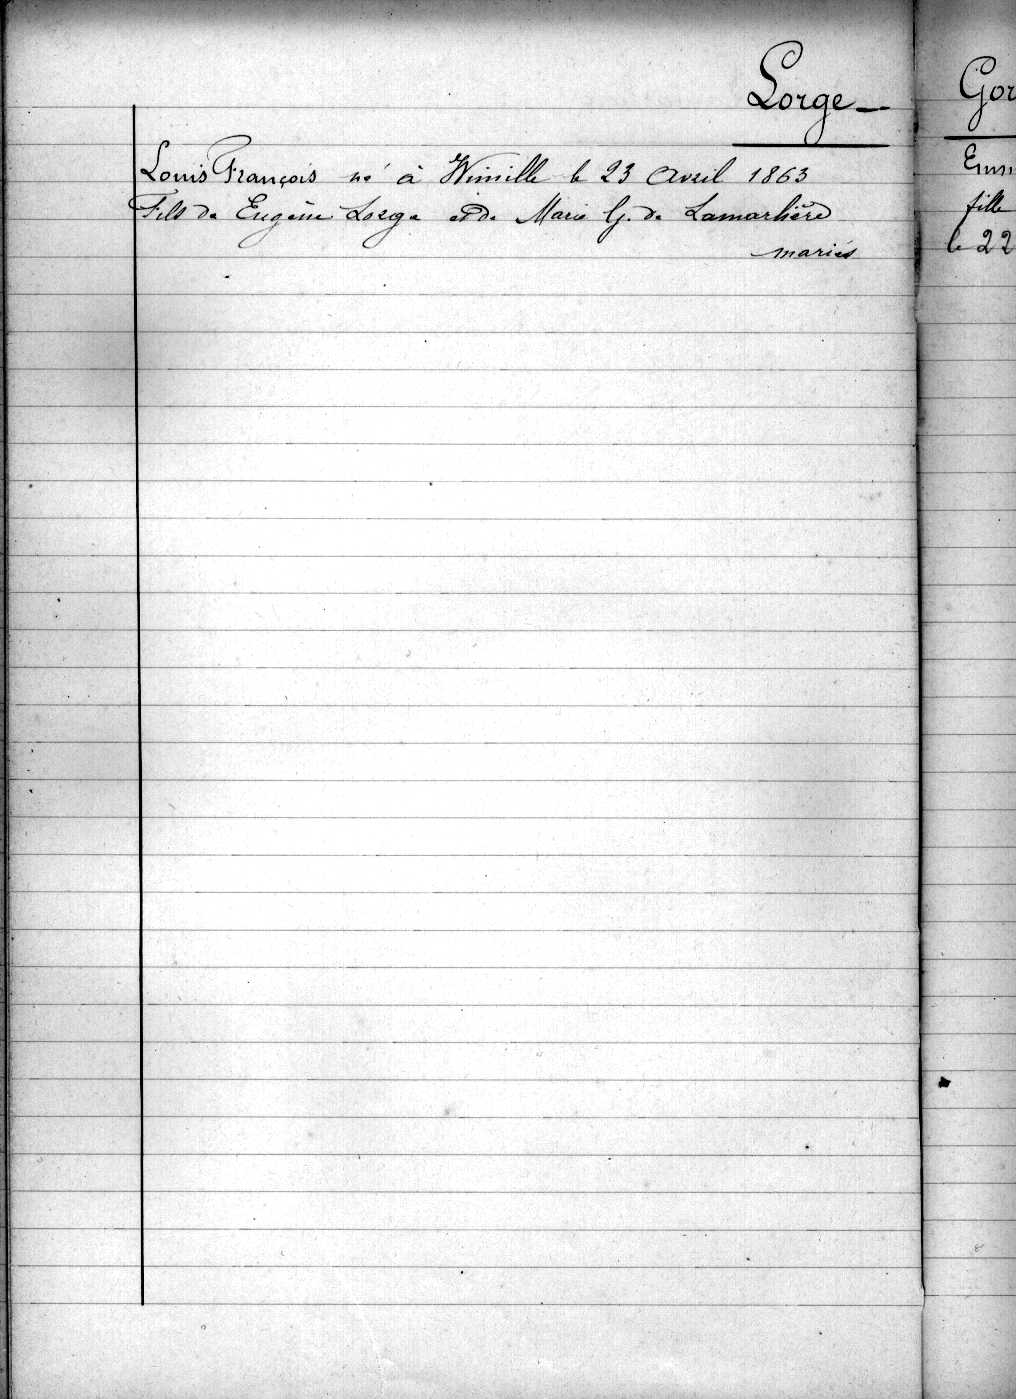 Lorge
Louis François né à Wimille le 23 Avril 1863
Fils de Eugène Lorge et de Marie G. de Lamarlière
mariés
Gor
Emm
fille
le 22